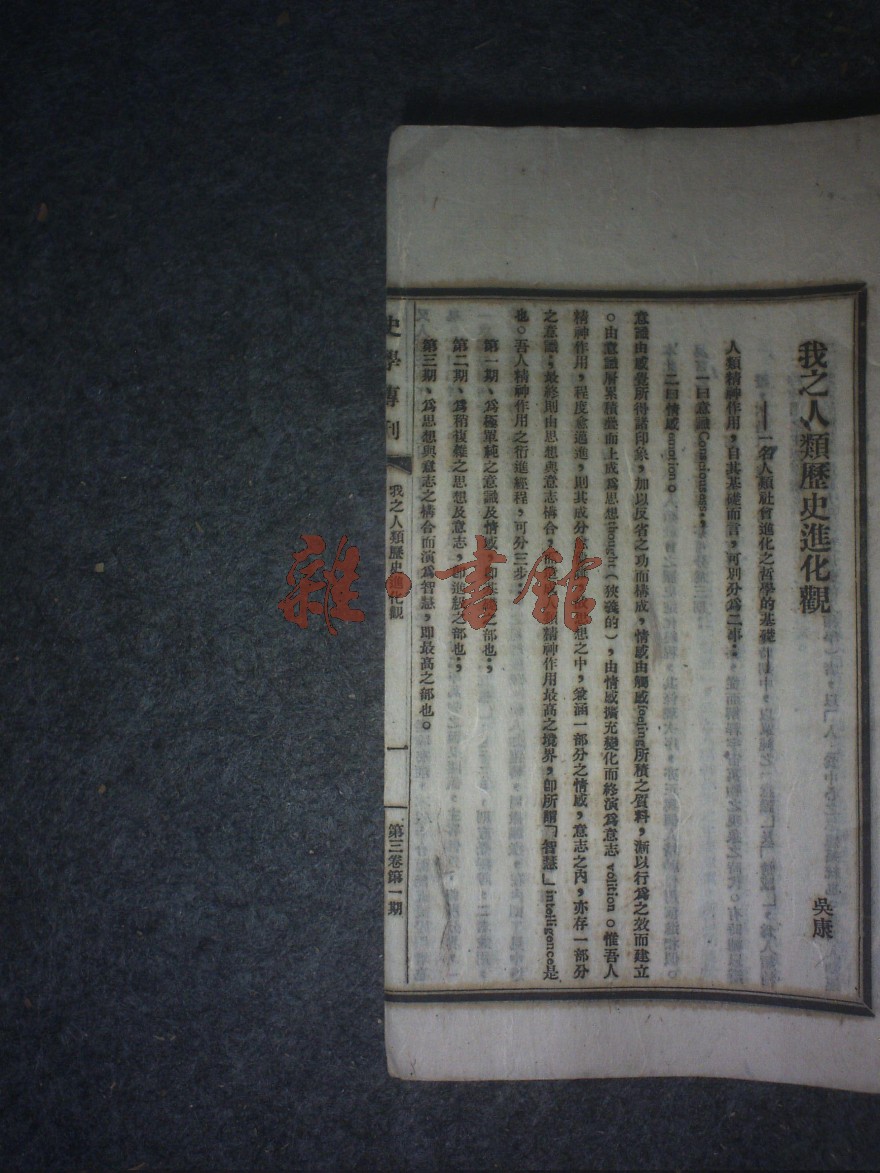 我之人類歷史進化觀
吳康
——一名人類社會進化之哲學的基礎
人類精神作用，自其基礎而言，可別分為二事：
一曰意識Consciousness.，
二曰情感emotion。
意識由感覺所得諸印象，加以反省之功而構成，情感由觸感feeling所積之質料，漸以行為之效而建立
。由意識層累積疊而上成為思想thought（狹義的），由情感擴充變化而終演為意志 volition。惟吾人
精神作用，程度愈邁進，則其成分 想之中，兼涵一部分之情感，意志之內，亦存一部分
之意識；最終則由思想與意志構合， 精神作用最高之境界，即所謂「智慧」intelligence是
也。吾人精神作用之衍進經程，可分三步。
第一期、為極單純之意識及情感，即基礎之部也；
第二期、為稍複雜之思想及意志，即進級之部也；
第三期、為思想與意志之構合而演為智慧，即最高之部也。
史學專刊
我之人類歷史進化觀
一
第三卷第一期
雜·書館